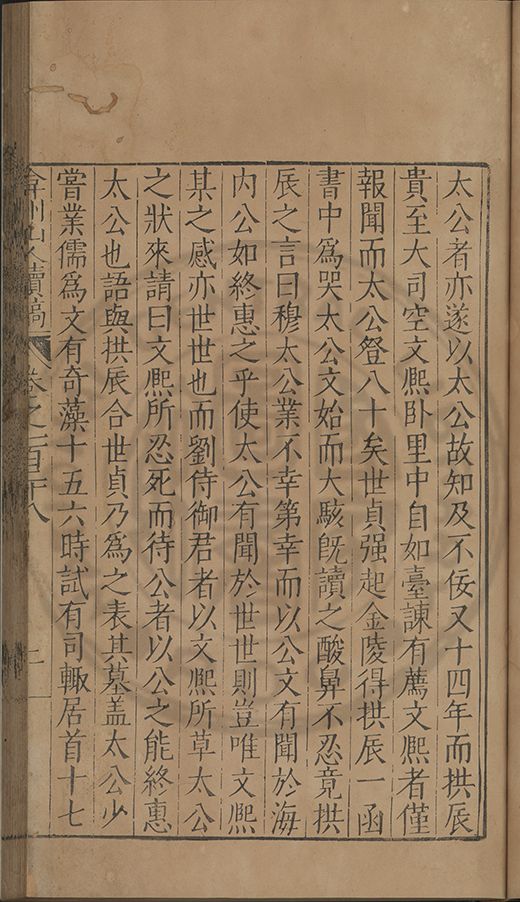 太公者亦遂以太公故知及不佞又十四年而拱辰
貴至大司空文熈卧里中自如臺諫有薦文熈者僅
報聞而太公登八十矣世貞强起金陵得拱辰一函
書中爲哭太公文始而大駭旣讀之酸鼻不忍竟拱
辰之言曰穆太公業不幸第幸而以公文有聞於海
内公如終惠之乎使太公有聞於世世則豈唯文熈
某之感亦世世也而劉侍御君者以文熈所草太公
之狀來請曰文熈所忍死而待公者以公之能終惠
太公也語與拱辰合世貞乃爲之表其墓盖太公少
嘗業儒爲文有奇藻十五六時試有司輙居首十七
弇州山人續稿 卷之一百